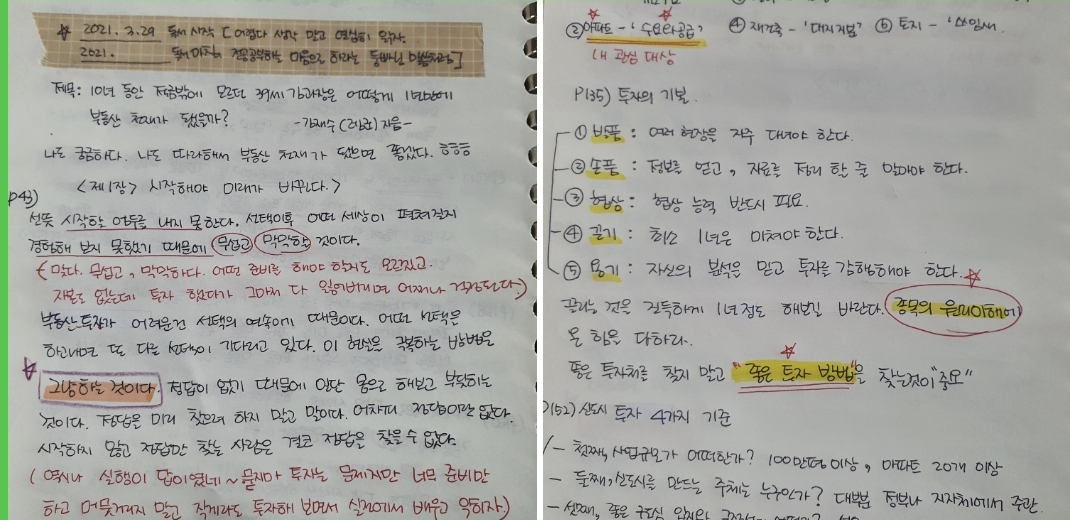 2021. 3.29 독서 시작 [ 어렵다 생각 말고 열심히 읽자.
2021. 독서 마침
제목: 10년 동안 적금밖에 모르던 39세 김과장은 어떻게 1년만에
부동산 천재가 됐을까?
-김재수(렘군) 지음-
나도 궁금하다. 나도 따라해서 부동산 천재가 됐으면 좋겠다. ㅎㅎㅎ
<제1장> 시작해야 미래가 바뀐다.>
선뜻 시작할 엄두를 내지 못한다. 선택이후 어떤 세상이 펼쳐질지
경험해 보지 못했기 때문에 무섭고 막막한 것이다.
(맞다. 무섭고, 막막하다. 어떤 준비를 해야 할지도 모르겠고.
자본도 없는데 투자 했다가 그마저 다 잃어버리면 어쩌나 걱정된다.)
부동산투자가 어려운건 선택의 연속이기 때문이다. 어떤 선택은
하고나면 또 다른 선택이 기다리고 있다. 이 현상을 극복하는 방법은
그냥하는 것이다. 정답이 없기 때문에 일단 몸으로 해보고 부딪히는
것이다. 정답을 미리 찾으려 하지 말고 말이다. 어차피 정답이란 없다.
시작하지 않고 정답만 찾는 사람은 결코 정답을 찾을 수 없다.
( 역시나 실행이 답이였네~ 묻지마 투자는 문제지만 너무 준비만
하고 머뭇거리지 말고 작게라도 투자해 보면서 실전에서 배우고 익히자.)
② 아파트 - '수요와공급' ④ 재건축 - '대지지분' ⑥ 토지 - '쓰임새'
내 관심 대상
P135) 투자의 기본.
① 발품 : 여러 현장을 자주 다녀야 한다.
② 손품 : 정보를 얻고, 자료를 정리 할 줄 알아야 한다.
③ 협상 : 협상 능력 반드시 필요.
④ 끈기 : 최소 1년은 미쳐야 한다.
⑤ 용기 : 자신의 분석을 믿고 투자를 감행해야 한다.
끌리는 것을 진득하게 1년 정도 해보길 바란다. 종목의 원리이해에
온 힘을 다하라.
좋은 투자처를 찾지 말고 "좋은 투자 방법"을 찾는것이 "중요"
P152) 신도시 투자 4가지 기준
- 첫째, 사업규모가 어떠한가? 100만평 이상, 아파트 20개 이상
- 둘째, 신도시를 만드는 주체는 누구인가? 대부분 정부나 지자체에서 주관.
- 셋째, 좋은